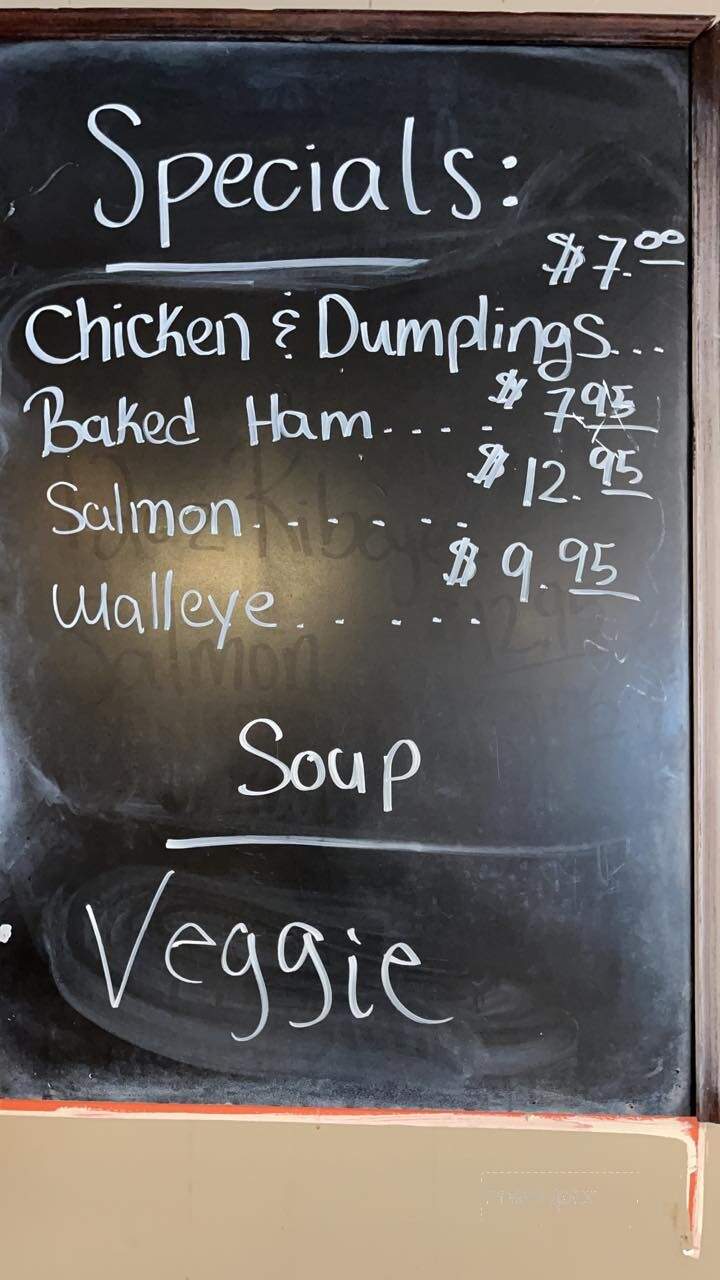 Specials:
$7.00
Chicken & Dumplings...
Baked Ham..... $7.95
Salmon....... $12.95
Walleye...... $9.95
Soup
Veggie